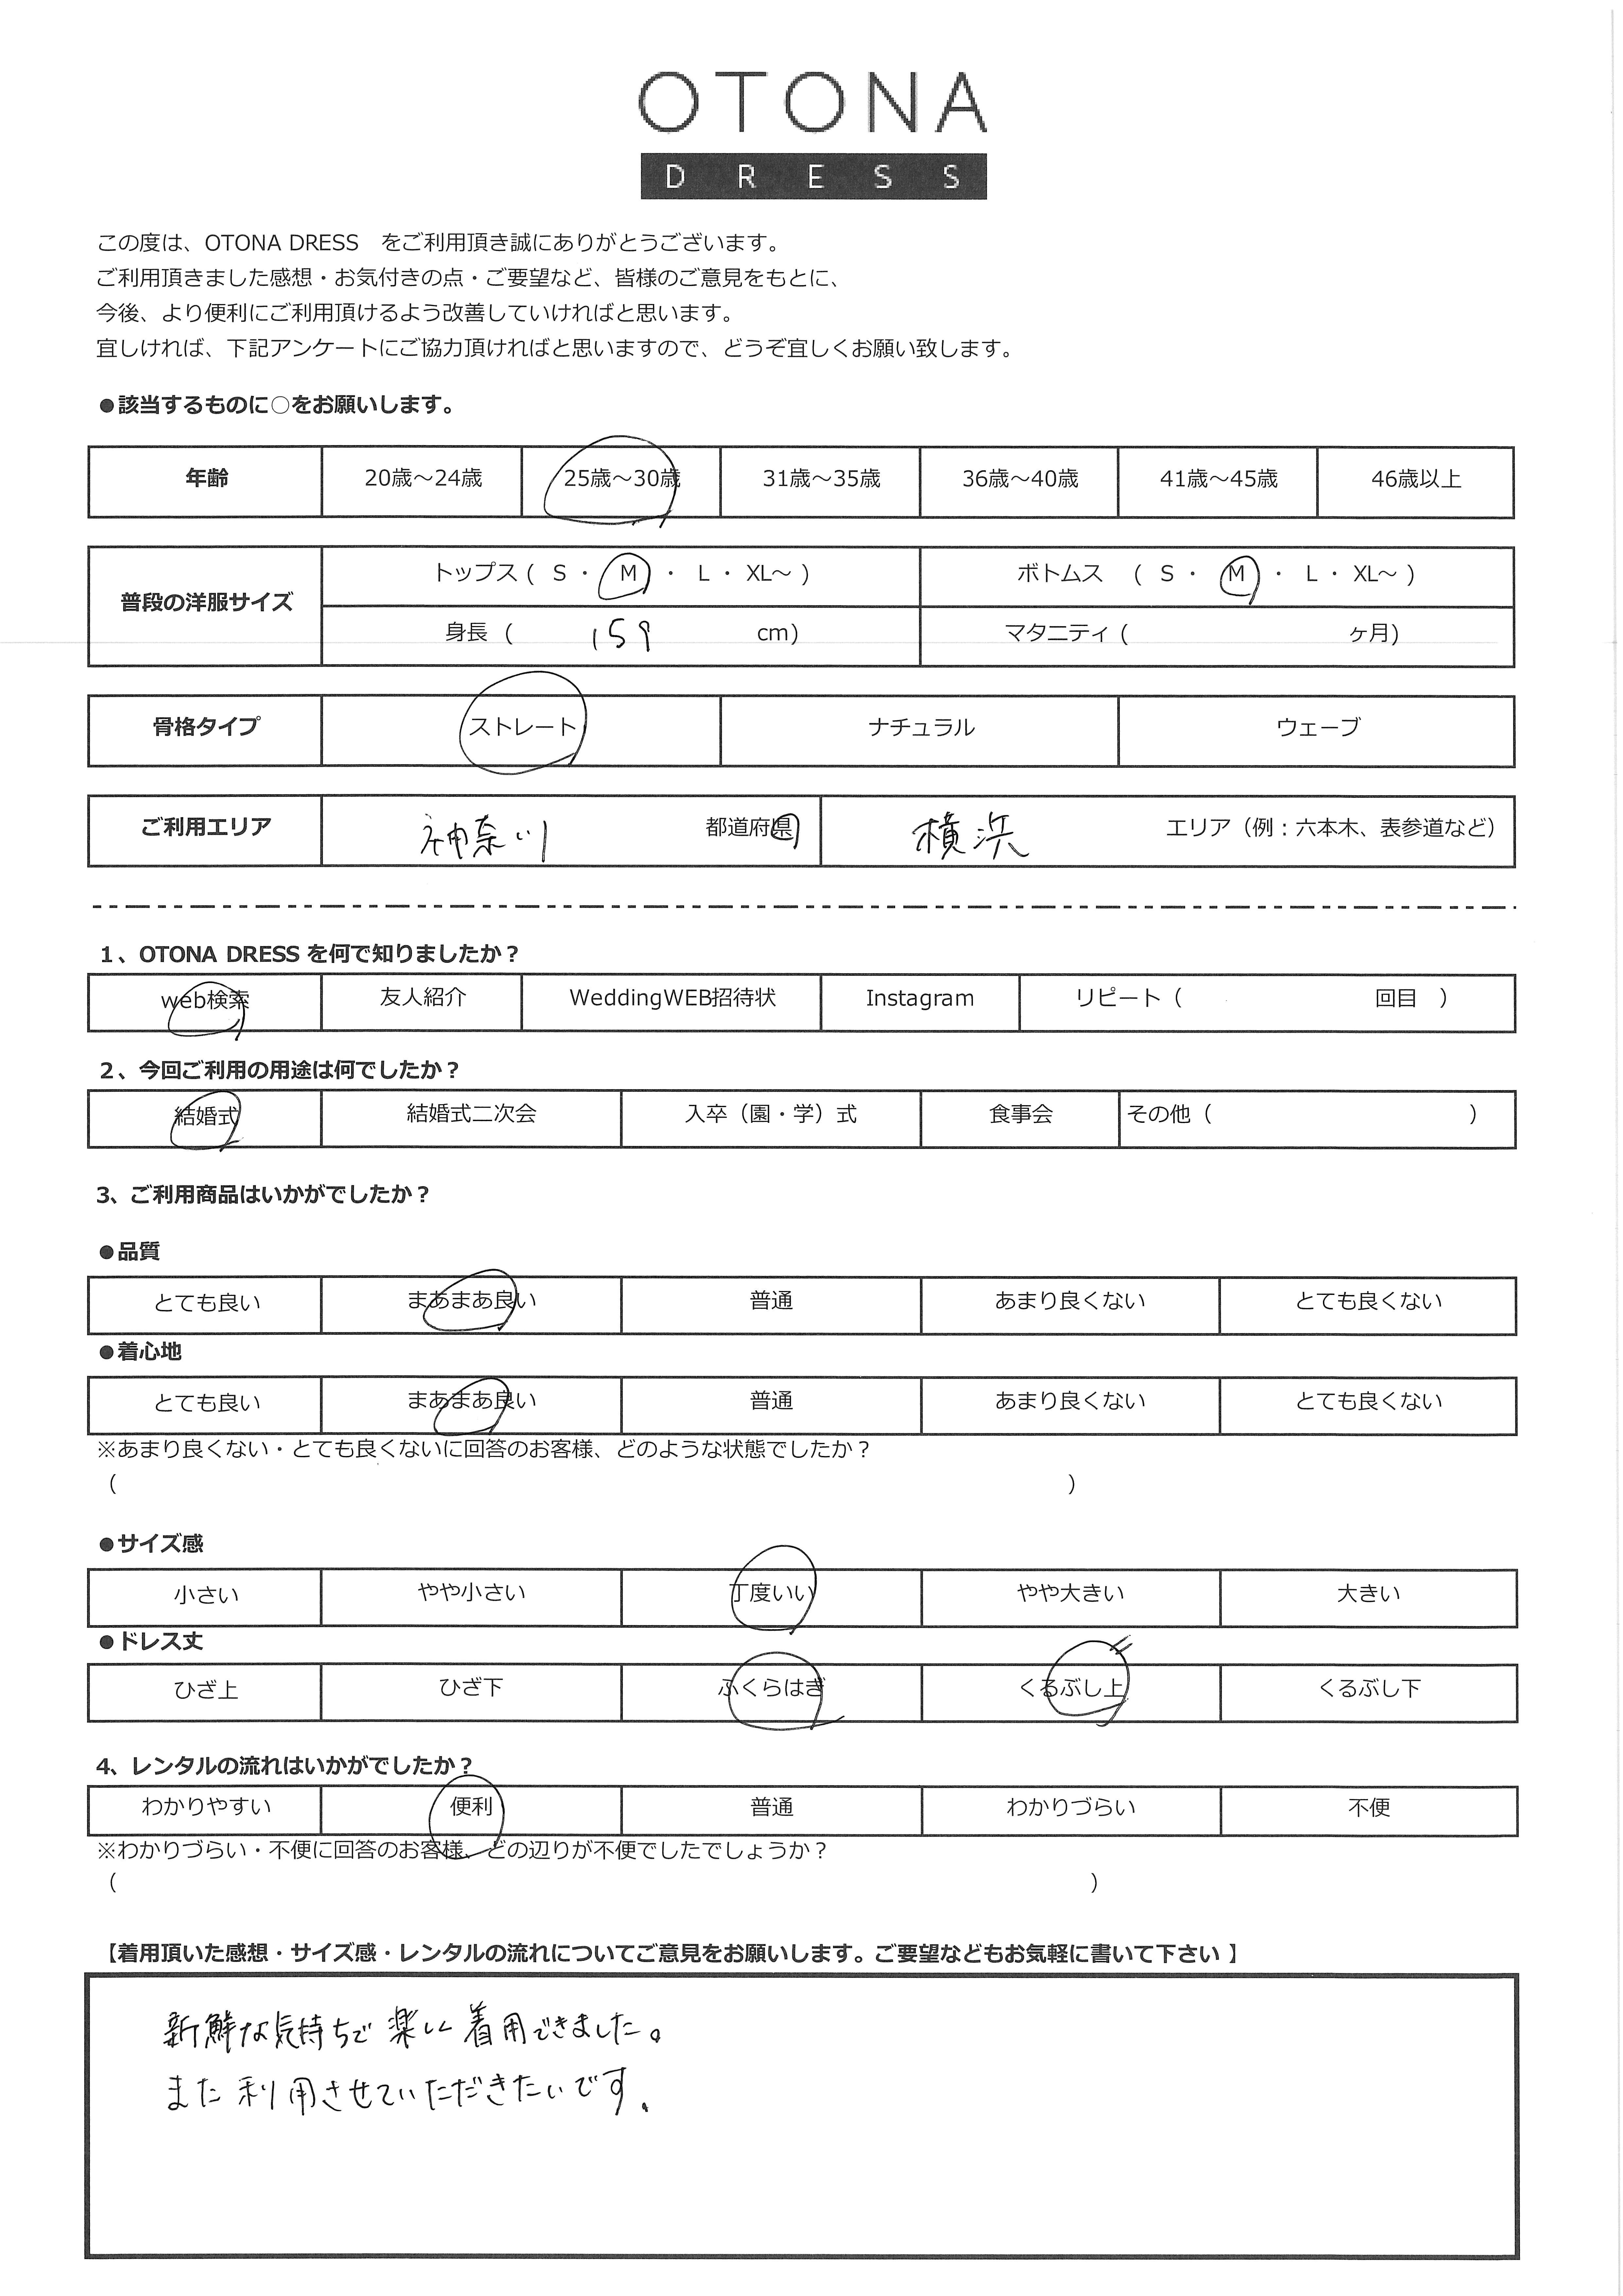 OTONA
DRESS
この度は、OTONA DRESS をご利用頂き誠にありがとうございます。
ご利用頂きました感想・お気付きの点・ご要望など、皆様のご意見をもとに、
今後、より便利にご利用頂けるよう改善していければと思います。
宜しければ、下記アンケートにご協力頂ければと思いますので、どうぞ宜しくお願い致します。
●該当するものに○をお願いします。
年齢 20歳～24歳 25歳～30歳 31歳～35歳 36歳～40歳 41歳～45歳 46歳以上
普段の洋服サイズ トップス ( S ・ M ・ L ・ XL～ ) ボトムス ( S ・ M ・ L ・ XL～ )
身長 ( 159 cm) マタニティ ( ヶ月)
骨格タイプ ストレート ナチュラル ウェーブ
ご利用エリア 神奈川 都道府県 横浜 エリア（例：六本木、表参道など）
1、OTONA DRESS を何で知りましたか？
web検索 友人紹介 WeddingWEB招待状 Instagram リピート（ 回目 ）
2、今回ご利用の用途は何でしたか？
結婚式 結婚式二次会 入卒（園・学）式 食事会 その他（ ）
3、ご利用商品はいかがでしたか？
●品質
とても良い まあまあ良い 普通 あまり良くない とても良くない
●着心地
とても良い まあまあ良い 普通 あまり良くない とても良くない
※あまり良くない・とても良くないに回答のお客様、どのような状態でしたか？
（ ）
●サイズ感
小さい やや小さい 丁度いい やや大きい 大きい
●ドレス丈
ひざ上 ひざ下 ふくらはぎ くるぶし上 くるぶし下
4、レンタルの流れはいかがでしたか？
わかりやすい 便利 普通 わかりづらい 不便
※わかりづらい・不便に回答のお客様、どの辺りが不便でしたでしょうか？
（ ）
【着用頂いた感想・サイズ感・レンタルの流れについてご意見をお願いします。ご要望などもお気軽に書いて下さい 】
新鮮な気持ちで楽しく着用できました。
また利用させていただきたいです。